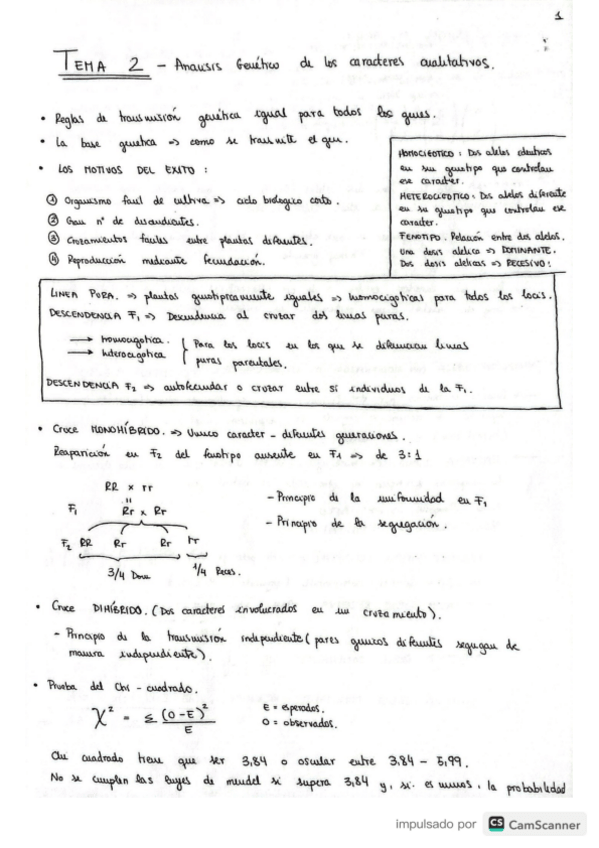 1
TEMA 2 - Analisis Genético de los caracteres cualitativos.
• Reglas de transmisión genética igual para todos los genes.
• La base genética => como se transmite el gen.
• LOS MOTIVOS DEL EXITO :
① Organismo facil de cultivar => ciclo biologico corto.
② Gran nº de descendientes.
③ Cruzamientos faciles entre plantas diferentes.
④ Reproducción mediante fecundación.
HOMOCIGOTICO : Dos alelos identicos
en su genotipo que controlan
ese caracter.
HETEROCIGOTICO : Dos alelos diferente
en su genotipo que controlan ese
caracter.
FENOTIPO. Relación entre dos alelos.
Una dosis alelica => DOMINANTE.
Dos dosis alelicas => RECESIVO :
LINEA PURA. => plantas genotipicamente iguales => homocigoticas para todos los locis.
DESCENDENCIA F1 => Descendencia al cruzar dos lineas puras.
→ homocigotica
→ heterocigotica
{ Para los locis en los que se diferencian lineas
puras parentales.
DESCENDENCIA F2 => autofecundar o cruzar entre sí individuos de la F1.
• Cruce MONOHÍBRIDO. => Unico caracter - diferentes generaciones.
Reaparición en F2 del fenotipo ausente en F1 => de 3:1
RR x rr
"
F1 Rr x Rr
F2 RR Rr Rr rr
3/4 Dom 1/4 Reces.
- Principio de la uniformidad en F1
- Principio de la segregación.
• Cruce DIHÍBRIDO. (Dos caracteres involucrados en un cruzamiento).
- Principio de la transmisión independiente (pares genicos diferentes segregan de
manera independiente).
• Prueba del Chi - cuadrado.
χ² = Σ (O-E)² / E
E = esperados.
O = observados.
Chi cuadrado tiene que ser 3,84 o oscilar entre 3,84 - 5,99.
No se cumplen las leyes de mendel si supera 3,84 y, si es menos, la probabilidad
impulsado por CS CamScanner